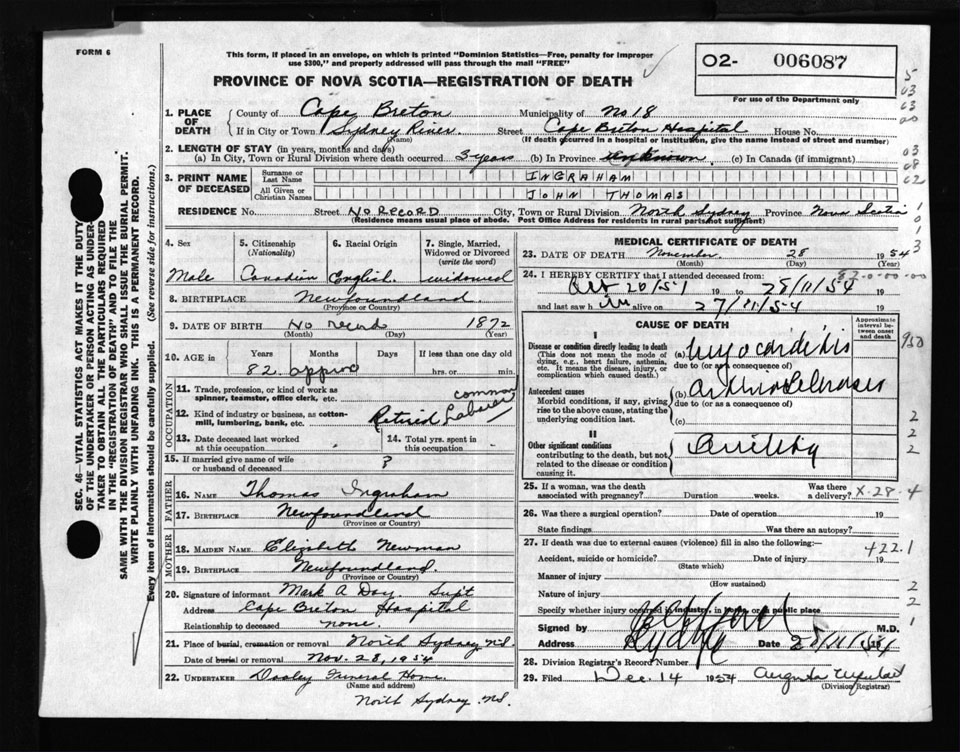 FORM 6
This form, if placed in an envelope, on which is printed "Dominion Statistics—Free, penalty for improper
use $300," and properly addressed will pass through the mail "FREE"
PROVINCE OF NOVA SCOTIA—REGISTRATION OF DEATH
O2- 006087
For use of the Department only
1. PLACE OF DEATH County of Cape Breton Municipality of No 18
If in City or Town Sydney River Street Cape Breton Hospital House No.
(Name) (If death occurred in a hospital or institution, give the name instead of street and number)
2. LENGTH OF STAY (in years, months and days)
(a) In City, Town or Rural Division where death occurred 3 years (b) In Province unknown. (c) In Canada (if immigrant)
3. PRINT NAME OF DECEASED Surname or Last Name INGRAHAM
All Given or Christian Names JOHN THOMAS
RESIDENCE No. Street NO RECORD City, Town or Rural Division North Sydney Province Nova Scotia
(Residence means usual place of abode. Post Office Address for residents in rural parts not sufficient)
4. Sex Male
5. Citizenship (Nationality) Canadian
6. Racial Origin English
7. Single, Married, Widowed or Divorced (write the word) widowed
8. BIRTHPLACE Newfoundland.
(Province or Country)
9. DATE OF BIRTH No record 1872
(Month) (Day) (Year)
10. AGE in Years Months Days If less than one day old
82. approx hrs. or min.
OCCUPATION
11. Trade, profession, or kind of work as spinner, teamster, office clerk, etc. common Laborer
12. Kind of industry or business, as cotton-mill, lumbering, bank, etc. Retired
13. Date deceased last worked at this occupation
14. Total yrs. spent in this occupation
15. If married give name of wife or husband of deceased ?
FATHER
16. NAME Thomas Ingraham
17. BIRTHPLACE Newfoundland
(Province or Country)
MOTHER
18. MAIDEN NAME Elizabeth Newman
19. BIRTHPLACE Newfoundland.
(Province or Country)
20. Signature of informant Mark A Day. Supt
Address Cape Breton Hospital
Relationship to deceased none.
21. Place of burial, cremation or removal North Sydney, N.S.
Date of burial or removal Nov. 28, 1954
22. UNDERTAKER Dooley Funeral Home
(Name and address)
North Sydney N.S.
MEDICAL CERTIFICATE OF DEATH
23. DATE OF DEATH November 28 1954
(Month) (Day) (Year)
24. I HEREBY CERTIFY that I attended deceased from:
Oct 20/51 19 to 28/11/54 19
and last saw him alive on 27/11/54 19
CAUSE OF DEATH
Approximate interval between onset and death
I
Disease or condition directly leading to death
(This does not mean the mode of dying, e.g., heart failure, asthenia, etc. It means the disease, injury, or complication which caused death.)
(a) myocarditis
due to (or as a consequence of)
Antecedent causes
Morbid conditions, if any, giving rise to the above cause, stating the underlying condition last.
(b) arteriosclerosis
due to (or as a consequence of)
(c)
II
Other significant conditions
contributing to the death, but not related to the disease or condition causing it.
Senility
25. If a woman, was the death associated with pregnancy? Duration weeks. Was there a delivery? X-28-4
26. Was there a surgical operation? Date of operation 19
State findings Was there an autopsy?
27. If death was due to external causes (violence) fill in also the following:— 422.1
Accident, suicide or homicide? Date of injury 19
(State which)
Manner of injury
(How sustained)
Nature of injury
Specify whether injury occurred in industry, in home or in public place
Signed by M.D.
Address Sydney Date 28/11/54
28. Division Registrar's Record Number
29. Filed Dec. 14 1954 Augusta
(Division Registrar)
SEC. 46—VITAL STATISTICS ACT MAKES IT THE DUTY
OF THE UNDERTAKER OR PERSON ACTING AS UNDER-
TAKER TO OBTAIN ALL THE PARTICULARS REQUIRED
IN THE "REGISTRATION OF DEATH" AND TO FILE THE
SAME WITH THE DIVISION REGISTRAR WHO SHALL ISSUE THE BURIAL PERMIT.
WRITE PLAINLY WITH UNFADING INK. THIS IS A PERMANENT RECORD.
Every item of information should be carefully supplied. (See reverse side for instructions.)